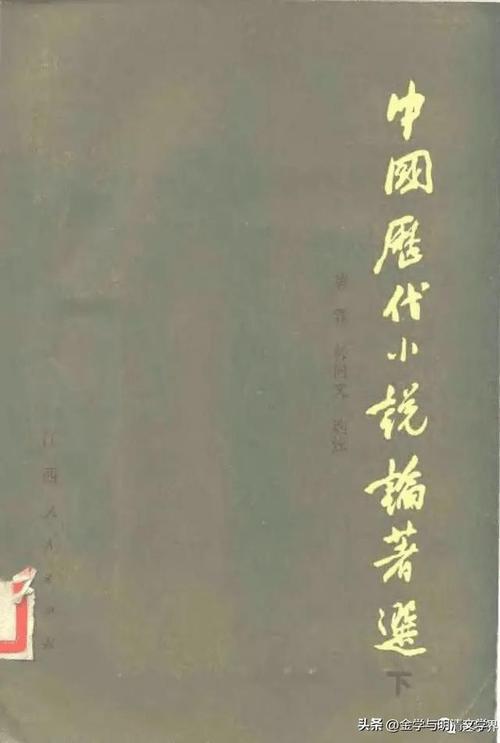 中國歷代小説論著選
下
黄霖 韩同文 选注
江西人民出版社
头条 @金学与明清文学界